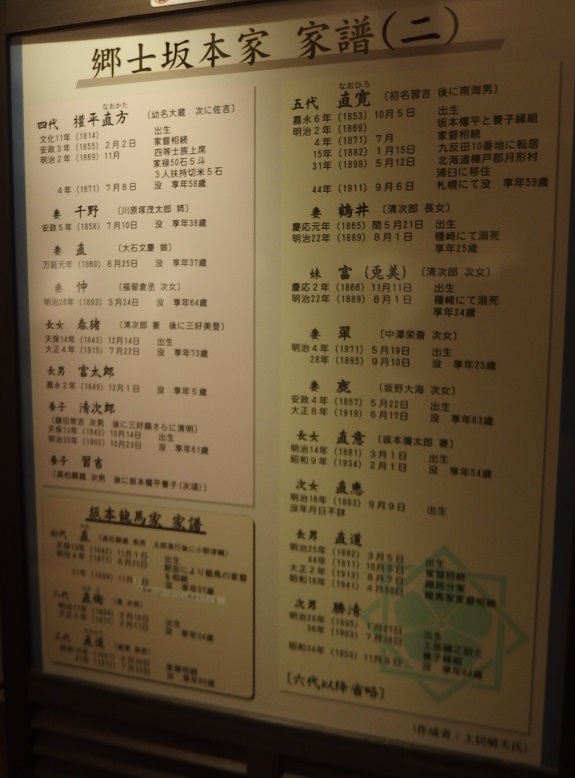 郷士坂本家 家譜(二)
四代 權平直方 (幼名大蔵 次に佐吉)
なおかた
文化11年 (1814) 出生
安政3年 (1855) 2月2日 家督相続
明治2年 (1869) 11月 四等士族上席
家禄50石5斗
3人扶持切米5石
4年 (1871) 7月8日 没 享年58歳
妻 千野 (川原塚茂太郎 姉)
安政5年 (1858) 7月10日 没 享年38歳
妻 直 (大石文慶 娘)
万延元年 (1860) 8月25日 没 享年37歳
妻 仲 (福留倉丞 次女)
明治26年 (1893) 3月24日 没 享年64歳
長女 春猪 (清次郎 妻 後に三好美登)
天保14年 (1843) 12月14日 出生
大正4年 (1915) 7月22日 没 享年73歳
長男 富太郎
嘉永2年 (1849) 12月1日 没 享年5歳
養子 清次郎
(鎌田實吉 次男 後に三好賜さらに清明)
天保13年 (1842) 10月14日 出生
明治35年 (1902) 10月23日 没 享年61歳
養子 習吉
(高松順蔵 次男 後に坂本権平養子(次項))
坂本龍馬家 家譜
初代 直
二代 直衛
三代 直道
家督相続
五代 直寛 (初名習吉 後に南海男)
なおひろ
嘉永6年 (1853) 10月5日 出生
明治2年 (1869) 坂本権平と養子縁組
4年 (1871) 7月 家督相続
15年 (1882) 1月15日 九反田10番地に転居
31年 (1898) 5月12日 北海道樺戸郡月形村
浦臼に移住
44年 (1911) 9月6日 札幌にて没 享年59歳
妻 鶴井 (清次郎 長女)
慶応元年 (1865) 閏5月21日 出生
明治22年 (1889) 8月1日 種崎にて溺死
享年25歳
妹 富 (兎美) (清次郎 次女)
慶応2年 (1866) 11月11日 出生
明治22年 (1889) 8月1日 種崎にて溺死
享年24歳
妻 翠 (中澤栄斎 次女)
明治4年 (1871) 5月19日 出生
28年 (1895) 9月10日 没 享年25歳
妻 鹿 (坂野大海 次女)
安政4年 (1857) 5月22日 出生
大正8年 (1919) 6月17日 没 享年63歳
長女 直意 (坂本彌太郎 妻)
明治14年 (1881) 3月1日 出生
昭和9年 (1934) 2月1日 没 享年54歳
次女 直恵
明治16年 (1883) 9月9日 出生
没年月日不詳
長男 直道
明治25年 (1892) 3月5日 出生
44年 (1911) 10月 家督相続
大正2年 (1913) 8月7日 隠居分家
昭和16年 (1941) 4月30日 龍馬家家督相続
次男 勝清
明治28年 (1895) 1月27日 出生
36年 (1903) 7月16日
養子縁組
昭和34年 (1959) 11月6日
[六代以降省略]
(作成者：土居晴夫氏)